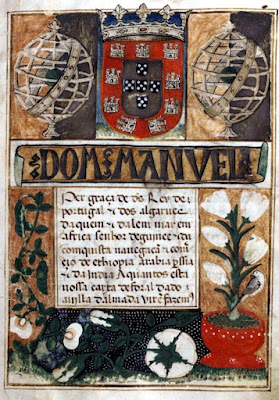 DOM MANUEL
Per graça de ds Rey de
portugal & dos algarues
daquem & dalem mar em
africa senhor de guinee & da
conquista nauegaçã & com
erçio de ethiopia arabia pssia
& da India Aquantos esta
nossa carta de foral dado a
uilla dalmada Virẽ fazem